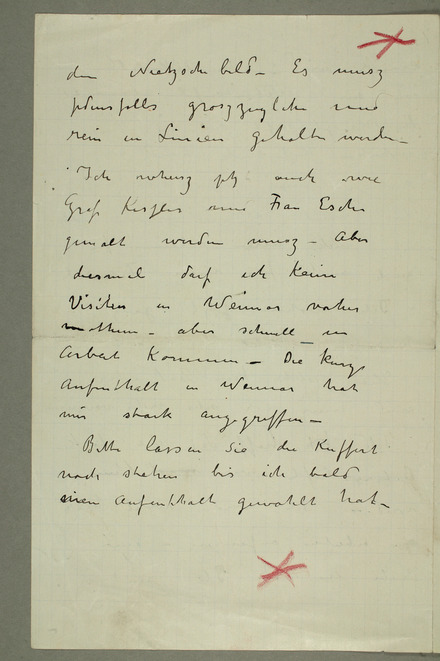 dem Nietzsche bild – Es musz
jedenfalls groszzuglich und
rein in Linien gehalten werden –
Ich weisz jetz auch wie
Graf Kessler und Frau Esche
gemalt werden musz – Aber
diesmal darf ich keine
Visiten in Weimar vorher
machen – aber schnell in
Arbeit kommen – Die kurze
Aufenthalt in Weimar hat
mir stark angegriffen –
Bitte lassen Sie die Kuffert
noch stehen bis ich bald
mein Aufenthalt gewählt hat –